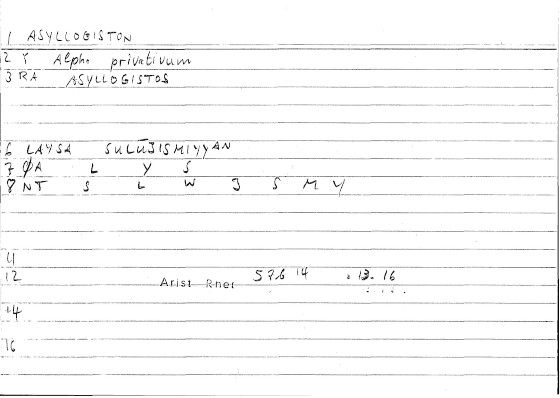 1 ASYLLOGISTON
2 Y Alpha privativum
3 RA ASYLLOGISTOS
6 LAYSA SULŪJISMIYYAN
7 ØA L Y S
8 NT S L W J S M Y
11
12 Arist Rhet 57b 14 13. 16
14
16